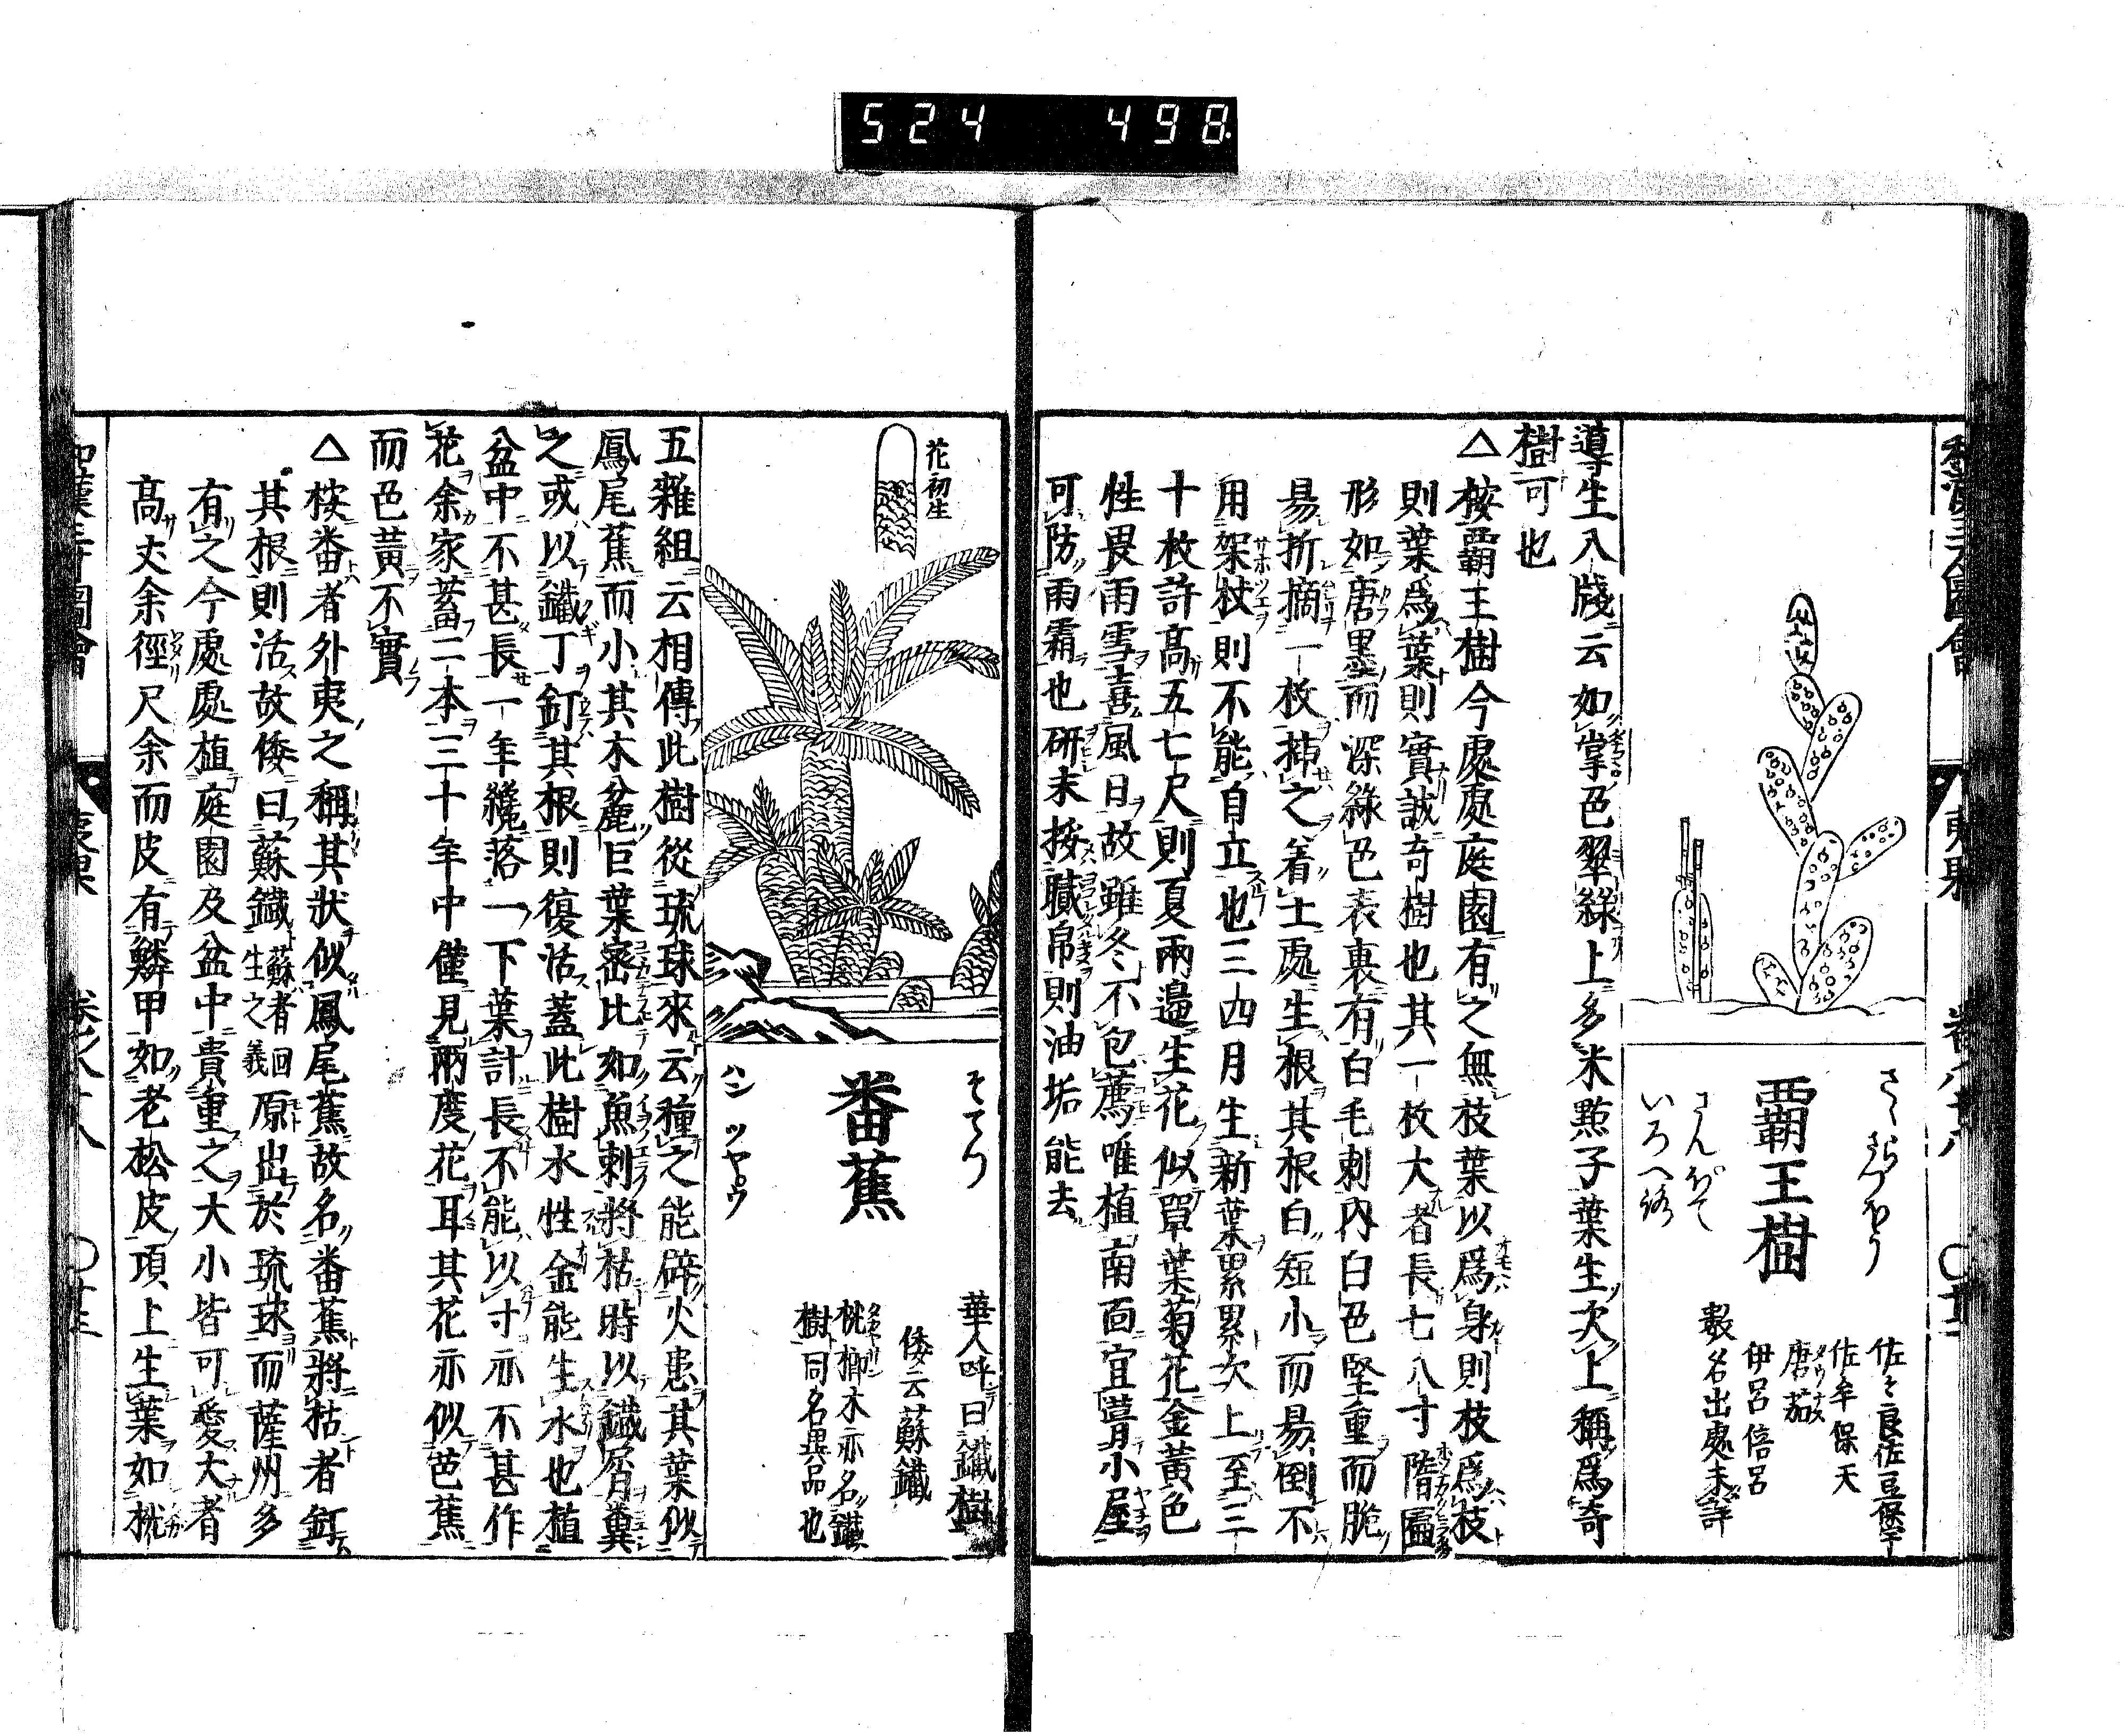 524 498
和漢三才圖會 夷果 卷之八十八 〇十二
さゝらさつほう
覇王樹
さんほて
いろへろ
佐々良佐豆保宇
佐牟保天
唐茄
伊呂倍呂
數名出處未詳
導生八牋云如掌色翠綠上多米㸃子葉生次上稱爲奇
樹可也
△按覇王樹今處處庭園有之無枝葉以爲身則枝爲枝
則葉爲葉則實誠奇樹也其一枚大者長七八寸隋匾
形如唐墨而深綠色表裏有白毛刺內白色堅重而脆
易折摘一枚挿之着土處生根其根白短小而易倒不
用架杖則不能自立也三四月生新葉累累次上至三
十枚許髙五七尺則夏兩邉生花似單葉菊花金黃色
性畏雨雪喜風日故雖冬不包薦唯植南面宜葺小屋
可防雨霜也研末挼膱帛則油垢能去
花初生
そてつ
番蕉
ハン ツヤ゜ウ
華人呼曰鐵樹
倭云蘇鐵
桄榔木亦名鐵
樹同名異品也
五雜組云相傳此樹從琉球來云種之能辟火患其葉似
鳳尾蕉而小其木麄巨葉宻比如魚刺將枯時以鐵屑糞
之或以鐵丁釘其根則復活蓋此樹水性金能生水也植
盆中不甚長一年纔落一下葉計長不能以寸亦不甚作
花余家蓄二本三十年中僅見兩度花耳其花亦似芭蕉
而色黃不實
△按番者外夷之稱其狀似鳳尾蕉故名番蕉將枯者釘
其根則活故倭曰蘇鐵蘇者回生之義原出於琉球而薩州多
有之今處處植庭園及盆中貴重之大小皆可愛大者
髙丈余徑尺余而皮有鱗甲如老松皮頂上生葉如桄
和漢三才圖會 夷果 卷之八十八 〇十三